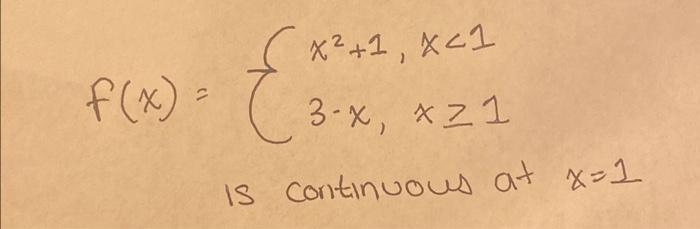 f(x) = { x²+1, x<1
3-x, x≥1
is continuous at x=1